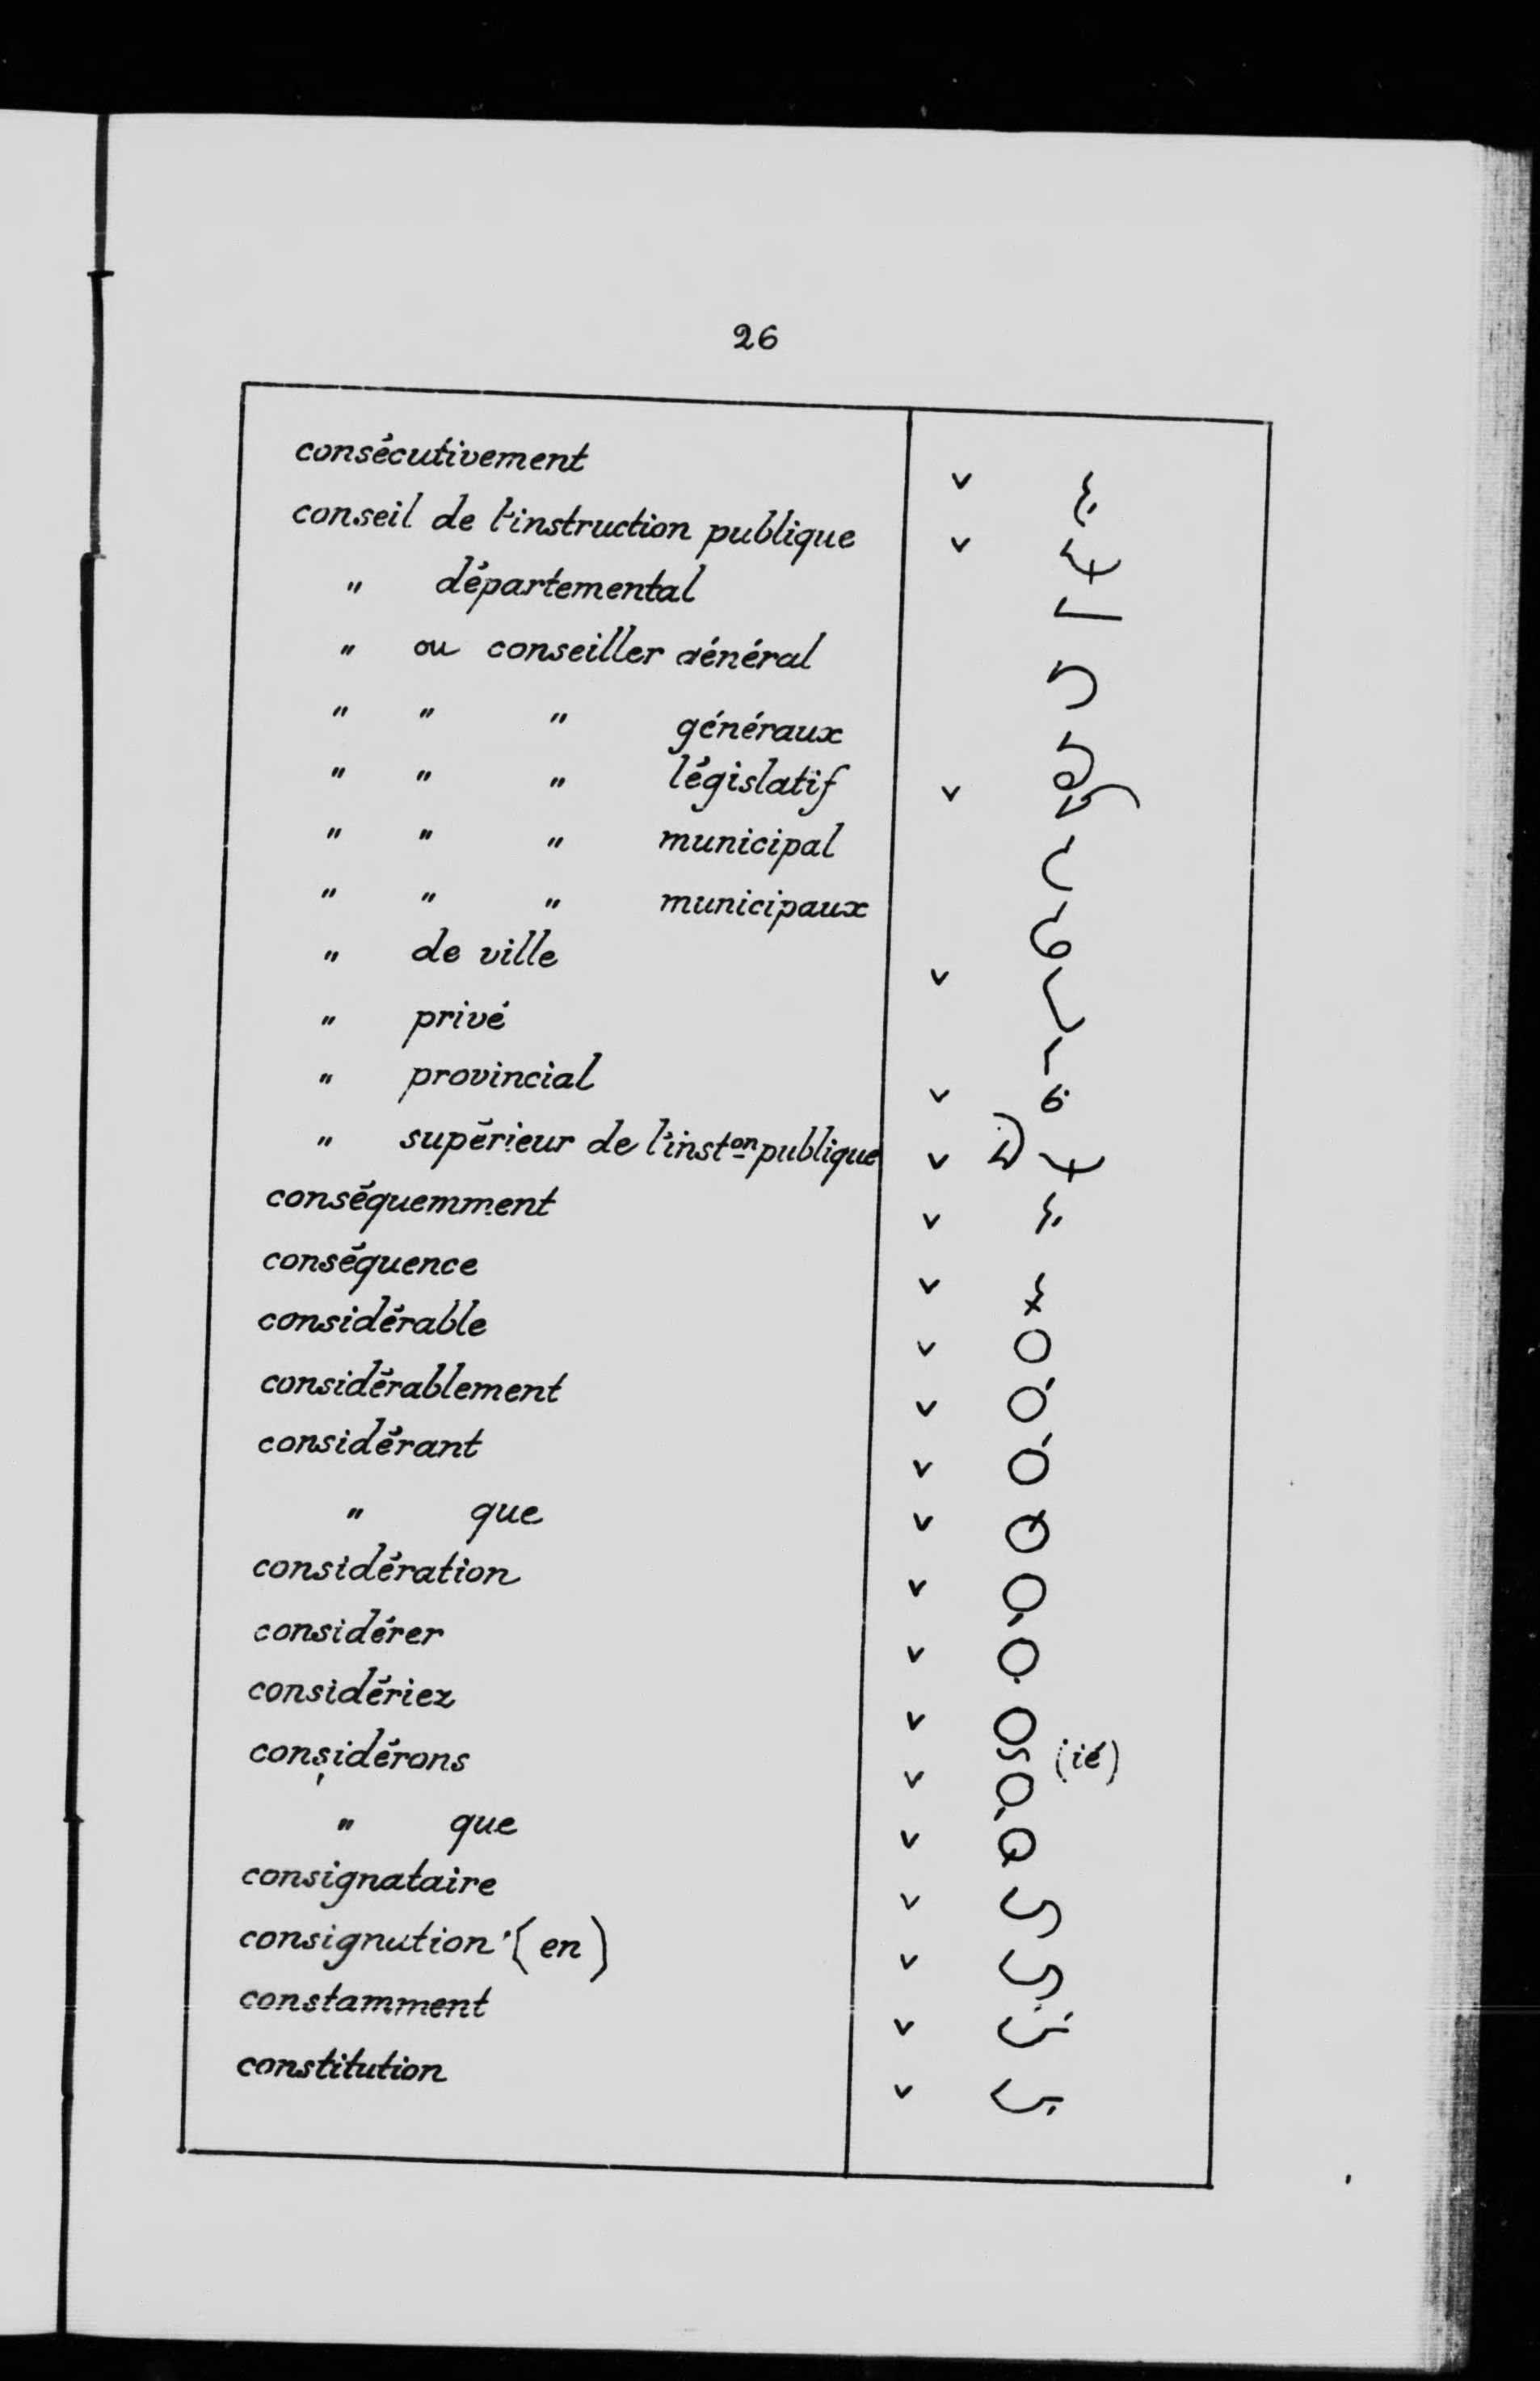 26
consécutivement v
conseil de l'instruction publique v
" départemental
" ou conseiller général
" " " généraux
" " " législatif v
" " " municipal
" " " municipaux
" de ville v
" privé
" provincial v
" supérieur de l'inston publique v
conséquemment v
conséquence v
considérable v
considérablement v
considérant v
" que v
considération v
considérer v
considériez v (ié)
considérons v
" que v
consignataire v
consignation (en) v
constamment v
constitution v